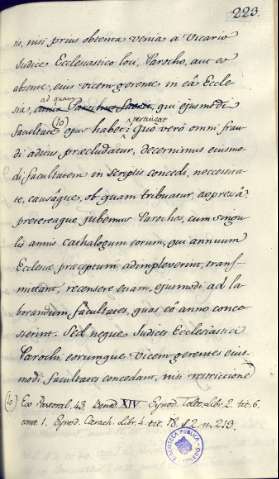 223.
tis, nisi prius obtenta venia a Vicario
Judice Ecclesiastico loci, Parocho, aut eo
absente, ejus vicem gerente in eâ Eccle-
ad quam pertineat
sia, qui ejusmodi
facultate (10) opus habet; Quo verò omni frau-
di aditus præcludatur, decernimus ejusmo-
di facultatem in scriptis concedi, necessita-
te, causâque, ob quam tribuatur, expressâ
prætereaque jubemus Parochos, cum singu-
lis annis cathalogum eorum, qui annuum
Ecclesiæ præceptum adimpleverint, trans-
mittant, recensere etiam, ejusmodi ad la-
borandum facultates, quas eô anno conce-
sserint. Sed neque Judices Ecclesiastici
Parochi eorumque Vicem gerentes ejus-
modi facultates concedant, nisi restrictione
(10) Ex Pastoral. 43. Bened. XIV. Synod. Tolet. Libr. 2. tit. 6.
const. 1. Synod. Carach. Libr. 4. tit. 18. §. 2. n. 219.
BIBLIOTECA PUBLICA